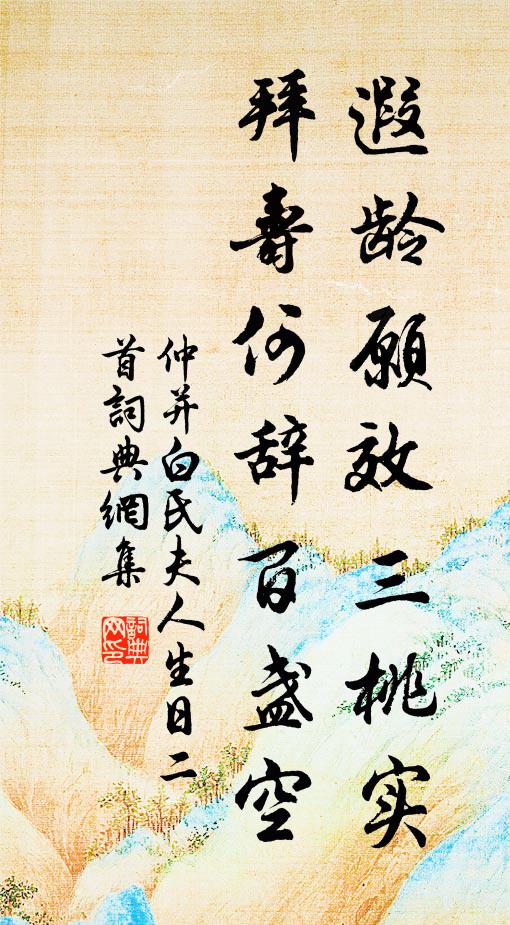 遐龄願效三桃实
拜壽何辞百盏空
仲并白氏夫人生日二
首詞典網集
詞典
网印